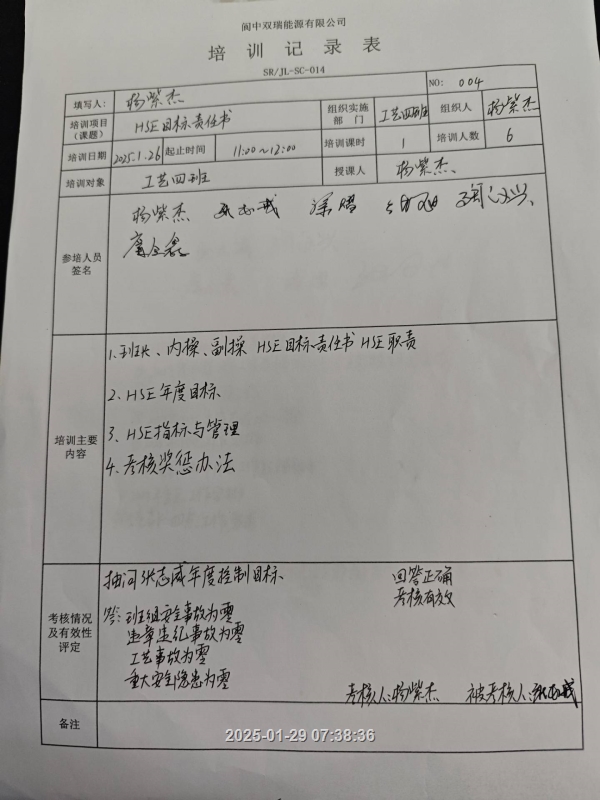 阆中双瑞能源有限公司
培训记录表
SR/JL-SC-014
填写人: 杨紫杰 NO: 004
培训项目(课题) HSE目标责任书 组织实施部门 工艺四班 组织人 杨紫杰
培训日期 2025.1.26 起止时间 11:00~12:00 培训课时 1 培训人数 6
培训对象 工艺四班 授课人 杨紫杰、
参培人员签名
杨紫杰
培训主要内容
1、班长、内操、副操 HSE目标责任书 HSE职责
2、HSE年度目标
3、HSE指标与管理
4、考核奖惩办法
考核情况及有效性评定
抽问张志成年度控制目标 回答正确
考核有效
答:班组安全事故为零
违章违纪事故为零
工艺事故为零
重大安全隐患为零
考核人:杨紫杰 被考核人:
备注
2025-01-29 07:38:36